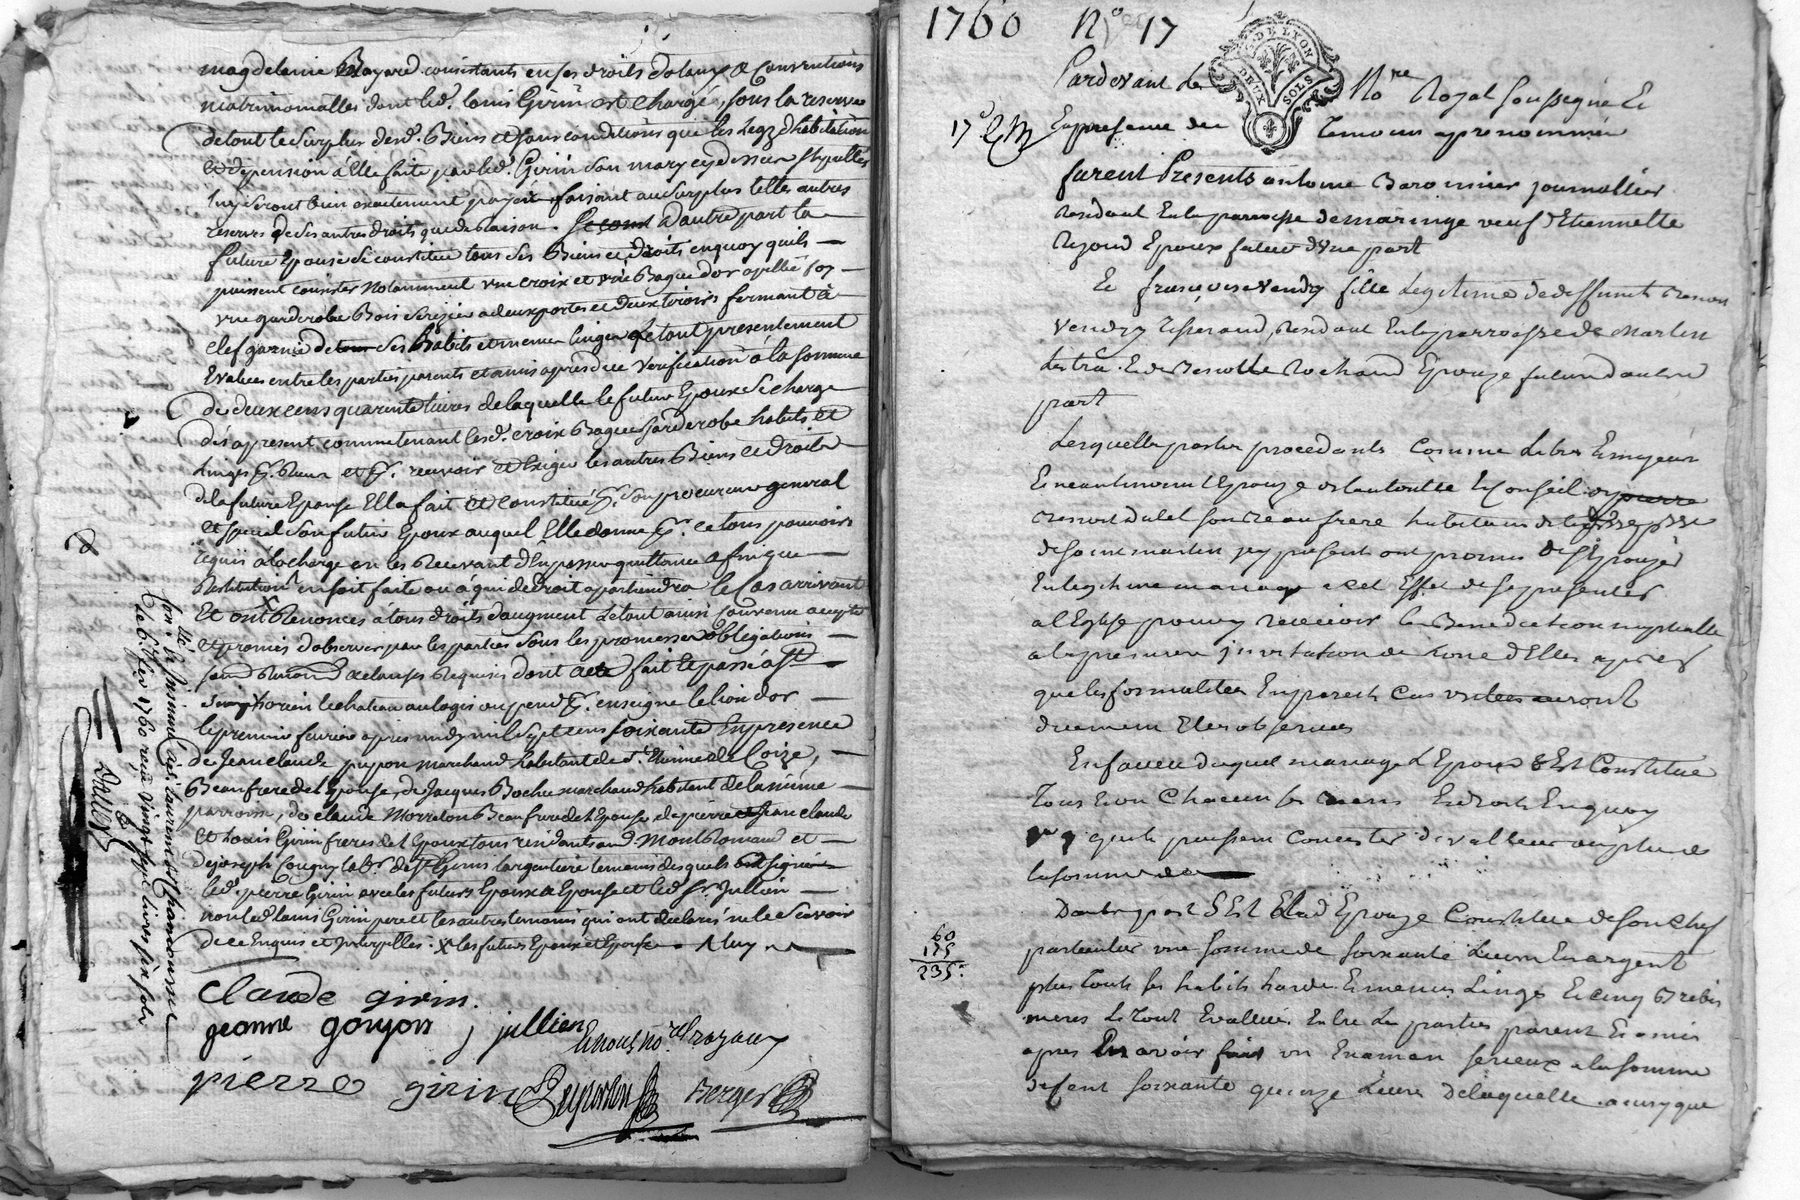 magdelaine Bayard consistants en ses droits dotaux & Conventions
matrimonialles dont led. louis Girin est chargé, sous la reserve
de tout le Surplus desd. Biens et sous conditions que les Legz d'habitation
et de pension a Elle faite par led. Girin son mary cy dessus stipulles
luy Seront bien exactement payés faisant au Surplus telles autres
reserves de Ses autres droits que de Raison. d'autre part la
future Epouse Se constitue tous Ses Biens et droits en quoy quils
puissent consister Notamment une croix et une Bague d'or
une garderobe Bois Serizier a deux portes et deux tiroirs fermant à
clef garnie de Ses habits et menu linge le tout presentement
Evalues entre les parties parents et amis apres due Verification à la somme
de deux cens quarente livres de laquelle le futur Epoux Se charge
dès apresent comme tenant lesd. croix Bague Garderobe habits et
linges et recevoir et Exiger les autres Biens et droits
de la future Epouse Elle a fait et Constitué Son procureur general
et special Son futur Epoux auquel Elle donne tous pouvoirs
requis à la charge en les Recevant d'En passer quittance afin que
Restitution en soit faite ou à qui de droit apartiendra le Cas arrivant
Et ont Renonces à tous droits d'augment Le tout ainsi convenu accepté
et promis d'observer par les parties Sous les promesses obligations
Renon & clauses Requises dont acte fait et passé a St
Simphorien le chateau au logis ou pend p. enseigne le lion d'or
le premier fevrier apres midy mil Sept cens Soixante En presence
de Jean claude puppon marchand habitant de St. Etienne de Coize,
Beaufrere del Epouse, de Jacques Bochu marchand habitant de la même
parroisse, de claude Morreton Beaufrere del Epouse de pierre Jean claude
et louis Girin freres del Epoux tous residants aud. Montromand et
de joseph Cougny lab. de St Genis largentiere temoins desquels ont signé
led. pierre Girin avec les futurs Epoux & Epouse et led. Sr. Jullien
non led. louis Girin pere et les autres temoins qui ont declarés ne le Scavoir
de ce Enquis et Interpellés. x les futurs Epoux et Epouse
claude girin.
jeanne goujon, jullien
Et nous no.res Royaux
pierre girin Berger
Con.llé & Insinué a St. laurent de Chamousset
le 8 fev 1760 reçu vingt sept livres six sols
1760 N.o 17
DE LYON
DEUX SOLS
Pardevant Le No.re Royal Soussigné Et
17.e
En presence des Temoins apres nommés
furent Presents antoine journallier
Residant En la parroisse de maringe veuf d'Etiennette
Epoux futur d'Une part
Et françoise Vendry fille Legitime de deffunt
Vendry Tisserand, Residant En la parroisse de St Martin
Lestra. Et de Rochand Epouze future d'autre
part
Lesquelles parties procedants Comme Libres Et majeurs
Et neantmoins l'Epouze de l'autoritté Et Conseil de pierre
son Beaufrere habitant de
de Saint martin jcy present ont promis de S'Epouzer
En legitime mariage & a cet Effet de se presenter
a l'Eglise pour y recevoir la Benediction nuptialle
a la premiere jnvitation de l'une d'Elles apres
que les formalitées En pareils Cas Usitées auront
duement Etés observees
En faveur duquel mariage L'Epoux S'Est Constitué
Tous Et un Chacun ses Biens Et droits En quoy
quils puissent Concister de valleur au plus de
la somme de
D'autre part S'Est Elad Epouze Constitué de Son Chef
60
175
235:
particulier une Somme de Soixante Livres En argent
plus Touts ses habits hardes Et menus Linges Et Cinq Brebis
meres Le Tout Evallué Entre Les parties parents Et amis
apres En avoir fait un Examen serieux a la Somme
de Cent Soixante quinze Livres De laquelle